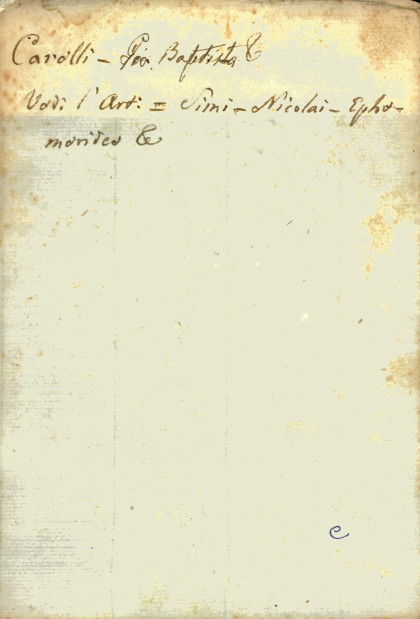 Carelli - Gio. Baptista &
Vedi l' Art: = Simi - Nicolai - Ephe-
merides &
e